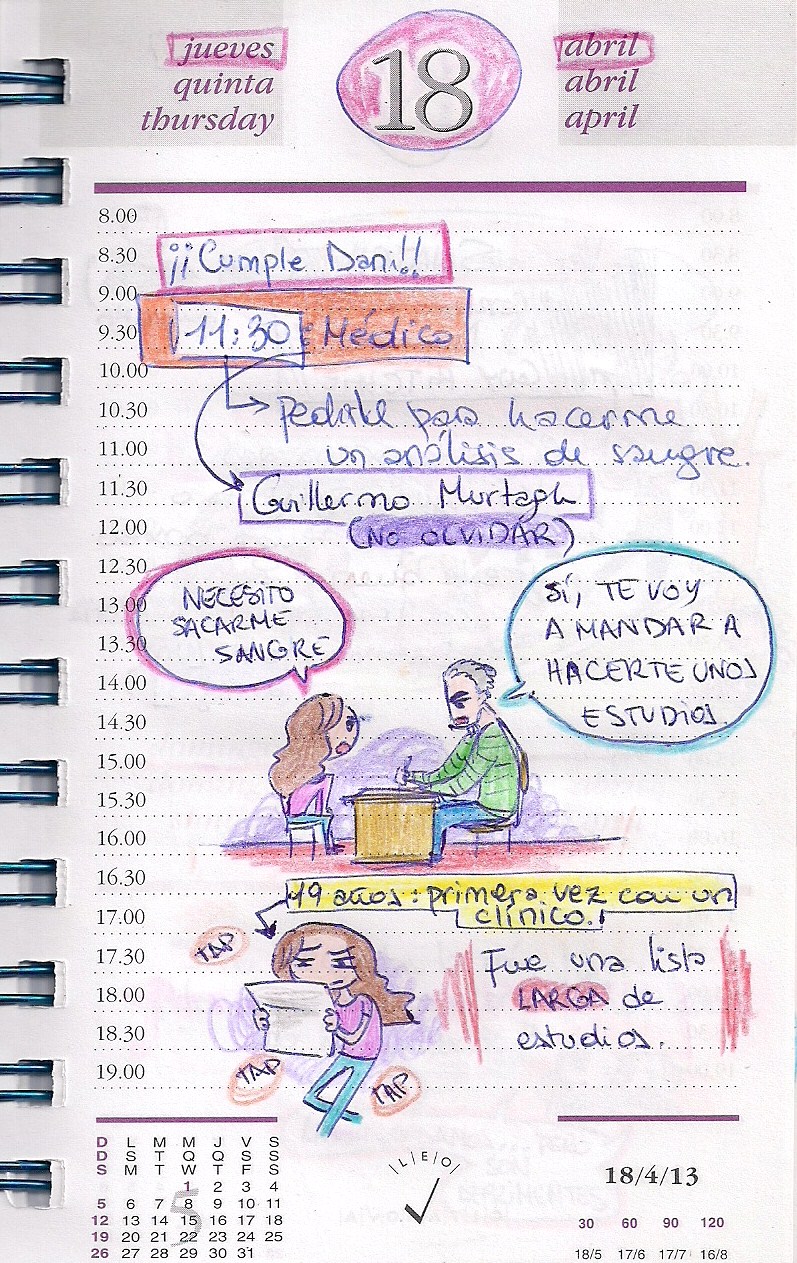 jueves
quinta
thursday
18
abril
abril
april
8.00
8.30
¡¡Cumple Dani!!
9.00
9.30
11:30: Médico
10.00
10.30
pedirle para hacerme
11.00
un análisis de sangre.
11.30
Guillermo Murtagh
12.00
(NO OLVIDAR)
12.30
13.00
NECESITO
SACARME
SANGRE
13.30
SÍ, TE VOY
A MANDAR A
HACERTE UNOS
ESTUDIOS.
14.00
14.30
15.00
15.30
16.00
16.30
19 años: primera vez con un
clínico.
17.00
TAP
17.30
Fue una lista
18.00
LARGA de
18.30
estudios.
19.00
TAP
TAP
D L M M J V S
D S T Q Q S S
S M T W T F S
1 2 3 4
5 6 7 8 9 10 11
12 13 14 15 16 17 18
19 20 21 22 23 24 25
26 27 28 29 30 31
5
|L|E|O|
18/4/13
30 60 90 120
18/5 17/6 17/7 16/8